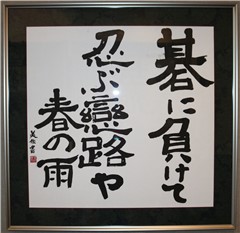 碁に負けて
忍ぶ戀路や
春の雨